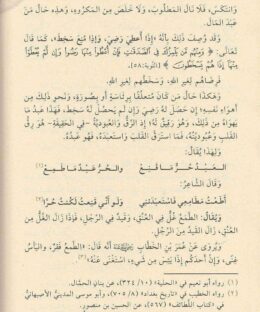 وَانْتَكَسَ، فَلَا نَالَ الْمَطْلُوبَ، وَلَا خَلَصَ مِنَ الْمَكْرُوهِ، وَهَذِهِ حَالُ مَنْ
عَبَدَ الْمَالَ.
وَقَدْ وَصَفَ ذَلِكَ بِأَنَّهُ «إِذَا أُعْطِيَ رَضِيَ، وَإِذَا مُنِعَ سَخِطَ»، كَمَا قَالَ
تَعَالَى: ﴿وَمِنْهُم مَّن يَلْمِزُكَ فِي الصَّدَقَاتِ فَإِنْ أُعْطُوا مِنْهَا رَضُوا وَإِن لَّمْ يُعْطَوْا
مِنْهَا إِذَا هُمْ يَسْخَطُونَ﴾ [التوبة: ٥٨].
فَرِضَاهُمْ لِغَيْرِ اللهِ، وَسَخَطُهُمْ لِغَيْرِ اللهِ.
وَهَكَذَا حَالُ مَنْ كَانَ مُتَعَلِّقًا بِرِئَاسَةٍ أَوْ بِصُورَةٍ، وَنَحْوِ ذَلِكَ مِنْ
أَهْوَاءِ نَفْسِهِ؛ إِنْ حَصَلَ لَهُ رَضِيَ وَإِنْ لَمْ يَحْصُلْ لَهُ سَخِطَ، فَهَذَا عَبْدُ مَا
يَهْوَاهُ مِنْ ذَلِكَ، وَهُوَ رَقِيقٌ لَهُ، إِذِ الرِّقُّ وَالْعُبُودِيَّةُ - فِي الْحَقِيقَةِ - هُوَ رِقُّ
الْقَلْبِ وَعُبُودِيَّتُهُ، فَمَا اسْتَرَقَّ الْقَلْبَ وَاسْتَعْبَدَهُ، فَهُوَ عَبْدُهُ.
وَلِهَذَا يُقَالُ:
الْعَبْدُ حُرٌّ مَا قَنِعْ وَالْحُرُّ عَبْدٌ مَا طَمِعْ(١)
وَقَالَ الشَّاعِرُ:
أَطَعْتُ مَطَامِعِي فَاسْتَعْبَدَتْنِي وَلَوْ أَنِّي قَنِعْتُ لَكُنْتُ حُرًّا(٢)
وَيُقَالُ: الطَّمَعُ غُلٌّ فِي الْعُنُقِ، وَقَيْدٌ فِي الرِّجْلِ، فَإِذَا زَالَ الْغُلُّ مِنَ
الْعُنُقِ، زَالَ الْقَيْدُ مِنَ الرِّجْلِ.
وَيُرْوَى عَنْ عُمَرَ بْنِ الْخَطَّابِ أَنَّهُ قَالَ: «الطَّمَعُ فَقْرٌ، وَالْيَأْسُ
غِنًى، وَإِنَّ أَحَدَكُمْ إِذَا يَئِسَ مِنْ شَيْءٍ، اسْتَغْنَى عَنْهُ»
(١) رواه أبو نعيم في «الحلية» (١٠/ ٣٢٤)، عن بنان الحمال.
(٢) رواه الخطيب في «تاريخ بغداد» (٨/ ٧٠٥)، وأبو موسى المديني الأصبهاني
في «كتاب اللطائف» (٥٦٧)، عن الحسين بن منصور.